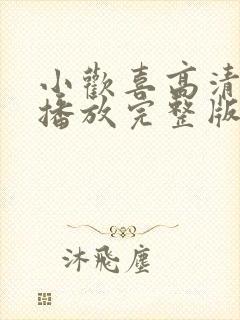 小歡喜高清
播放完整版
沐飛塵